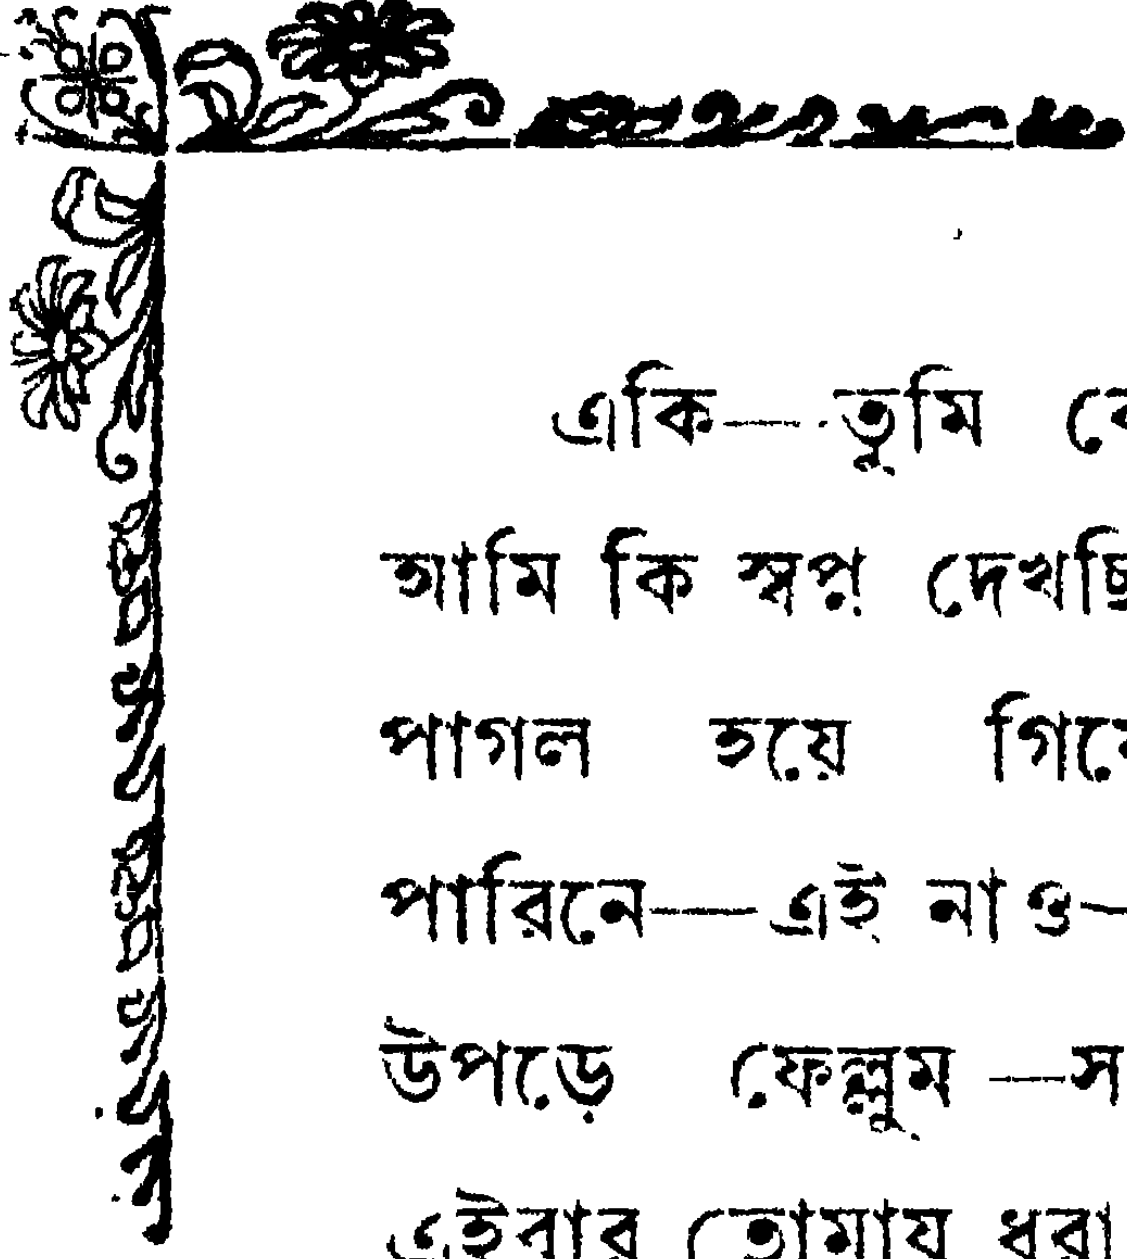 একি—তুমি
আমি কি স্বপ্ন দেখছি
পাগল হয়ে
পারিনে—এই নাও—
উপড়ে ফেল্লুম —স
এইবার তোমায় ধরা